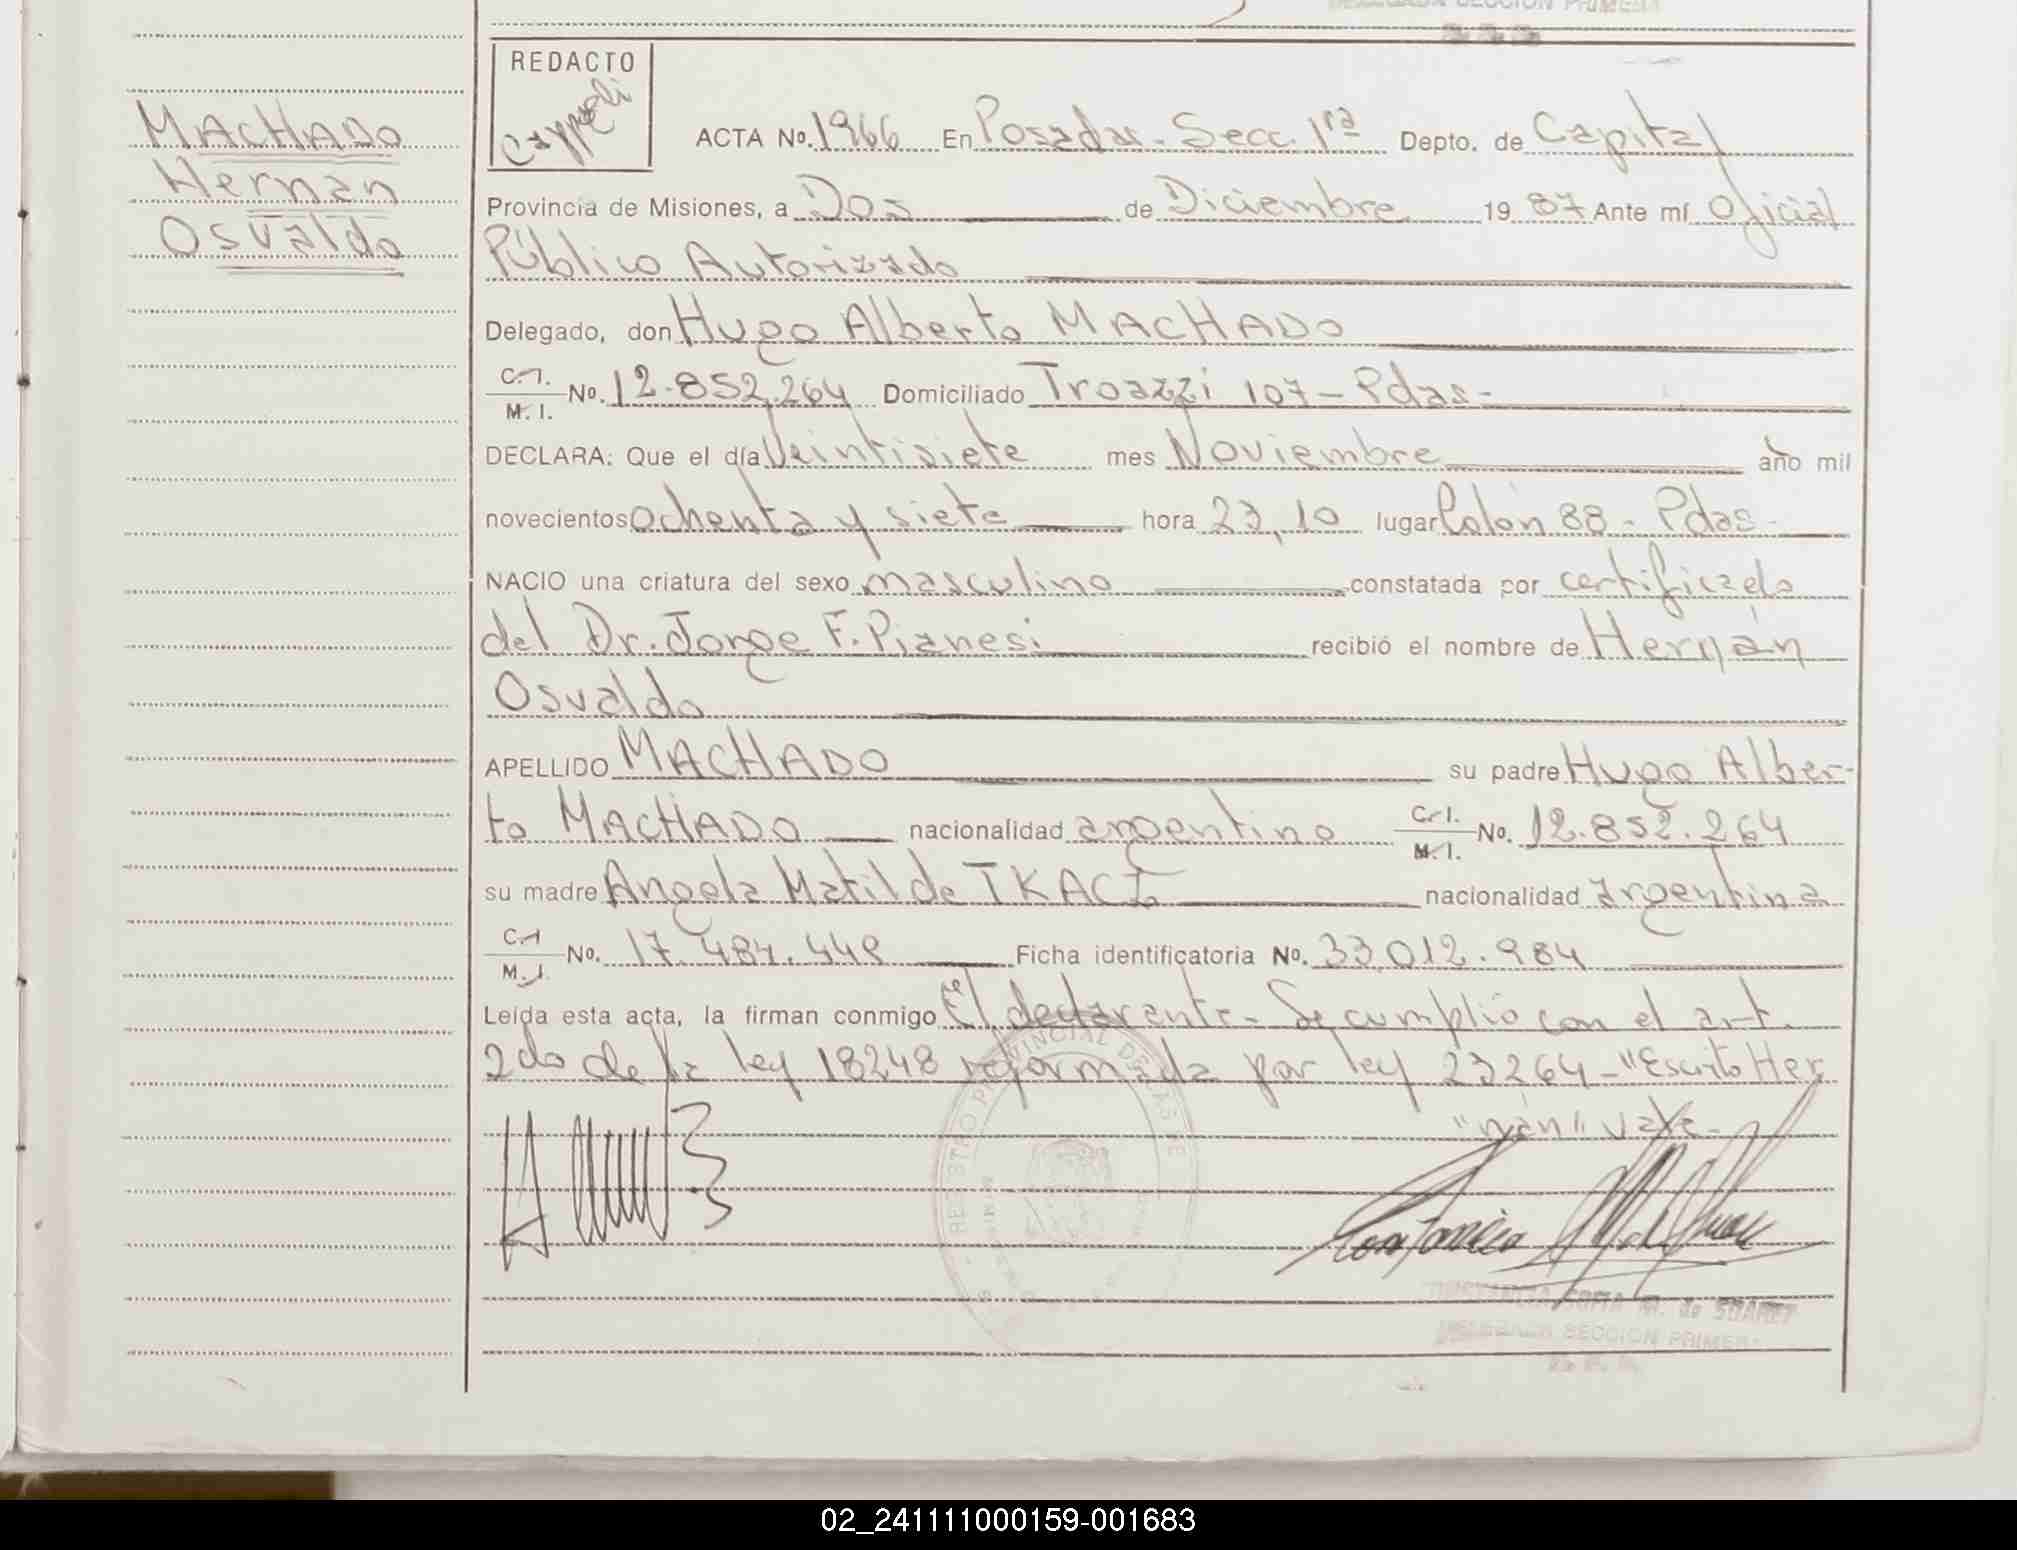 DELEGADA SECCION PRIMERA
MACHADO
Hernán
Osvaldo
REDACTO
ACTA No. 1966 En Posadas - Secc. 1ra Depto. de Capital
Provincia de Misiones, a Dos de Diciembre 19 87 Ante mí Oficial
Público Autorizado
Delegado, don Hugo Alberto MACHADO
C. I. M. I. No. 12.852.264 Domiciliado Troazzi 107 - Pdas -
DECLARA: Que el día Veintisiete mes Noviembre año mil
novecientos ochenta y siete hora 23,10 lugar Colón 88 - Pdas -
NACIO una criatura del sexo masculino constatada por certificado
del Dr. Jorge F. Pianesi recibió el nombre de Hernán
Osvaldo
APELLIDO MACHADO su padre Hugo Alber-
to MACHADO nacionalidad argentino C. I. M. I. No. 12.852.264
su madre Angela Matilde TKACZ nacionalidad argentina
C. I. M. I. No. 17.487.448 Ficha identificatoria No. 33.012.984
Leída esta acta, la firman conmigo El declarante - Se cumplió con el art.
2do de la ley 18248 reformada por ley 23264 - "Escrito Her
"nán" vale -
REGISTRO PROVINCIAL DE LAS PE
SOFIA M. de SUAREZ
DELEGADA SECCION PRIMERA
02_241111000159-001683